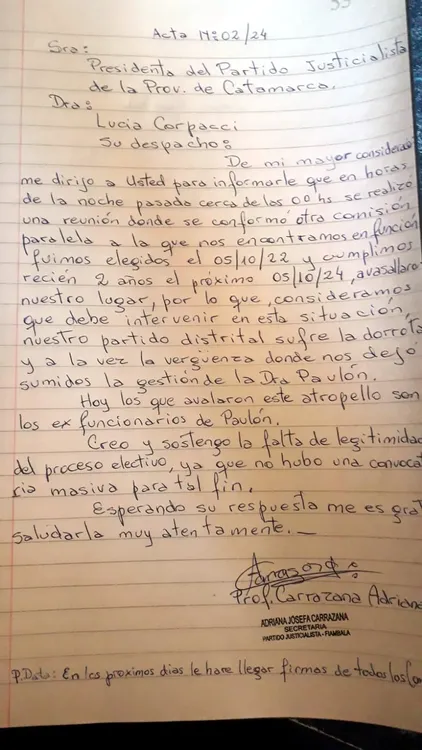 Acta Nº 02/24
Sra:
Presidenta del Partido Justicialista
de la Prov. de Catamarca.
Dra:
Lucia Corpacci
Su despacho:
De mi mayor considerac
me dirijo a Usted para informarle que en horas
de la noche pasada cerca de las 00 hs se realizó
una reunión donde se conformó otra comisión
paralela a la que nos encontramos en función
fuimos elegidos el 05/10/22 y cumplimos
recién 2 años el próximo 05/10/24, avasallaro
nuestro lugar, por lo que, consideramos
que debe intervenir en esta situación,
nuestro partido distrital sufre la dorrota
y a la vez la vergüenza donde nos dejó
sumidos la gestión de la Dra Paulón.
Hoy los que avalaron este atropello son
los ex funcionarios de Paulón.
Creo y sostengo la falta de legitimidad
del proceso electivo, ya que no hubo una convoca
ria masiva para tal fin.
Esperando su respuesta me es grat
saludarla muy atentamente.
Prof. Carrazana Adriana
ADRIANA JOSEFA CARRAZANA
SECRETARIA
PARTIDO JUSTICIALISTA - FIAMBALA
P.Data: En los proximos dias le haré llegar firmas de todos los